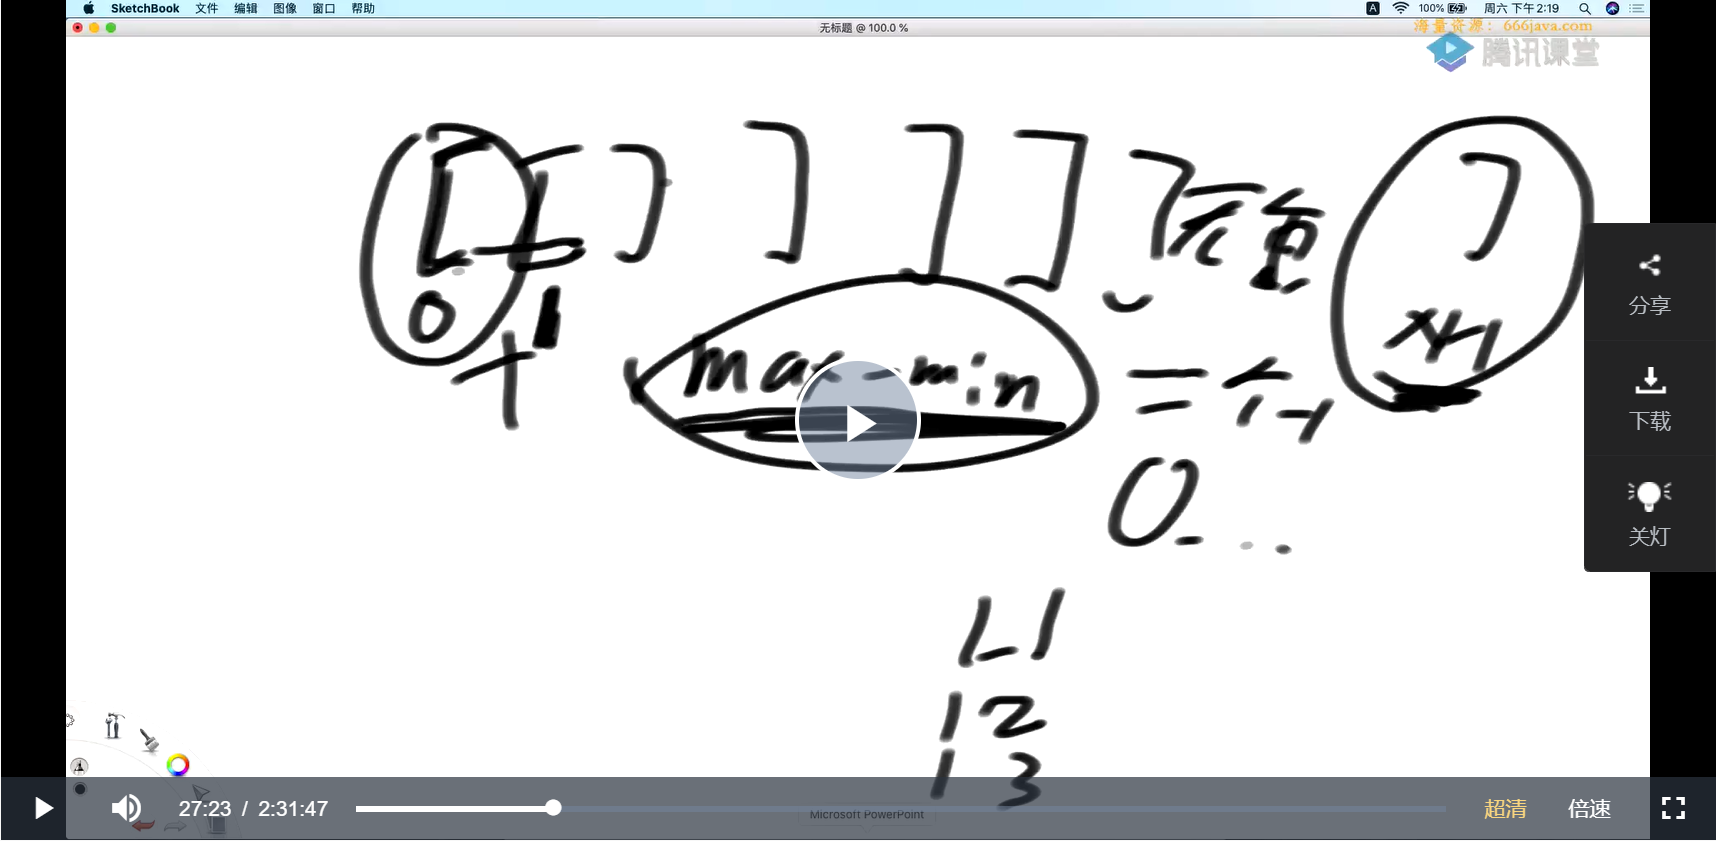 SketchBook 文件 编辑 图像 窗口 帮助 A 100% 周六 下午2:19
无标题 @ 100.0 %
海量资源：666java.com
腾讯课堂
[ [ ] ] ] ] ] 无重 ]
0 1 x+1
max - min =
0 - . .
L 1
1 2
1 3
分享
下载
关灯
27:23 / 2:31:47 超清 倍速
Microsoft PowerPoint